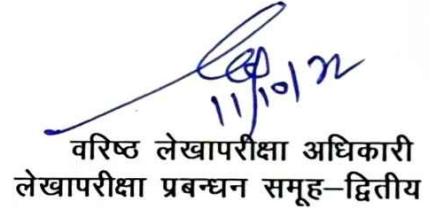 11/10/22
वरिष्ठ लेखापरीक्षा अधिकारी
लेखापरीक्षा प्रबन्धन समूह–द्वितीय